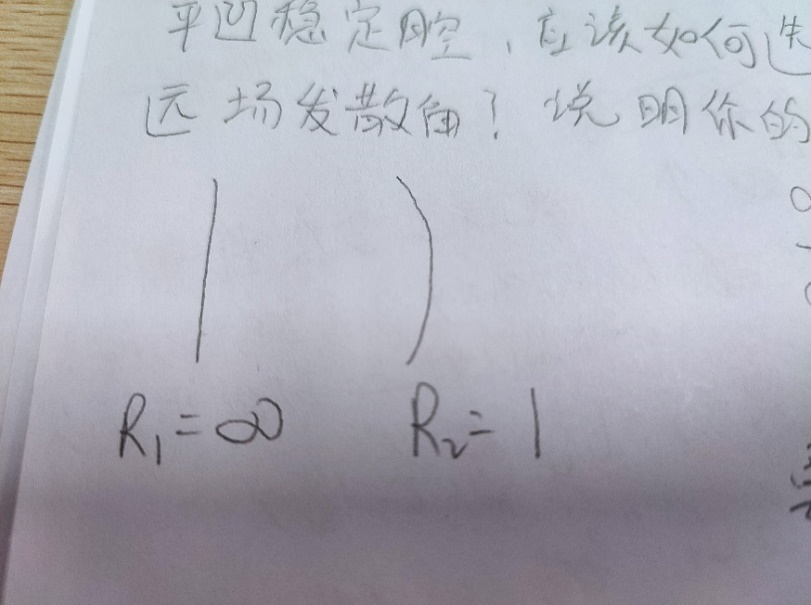 平凹稳定腔，应该如何选
远场发散角？说明你的
R₁=∞ R₂=1